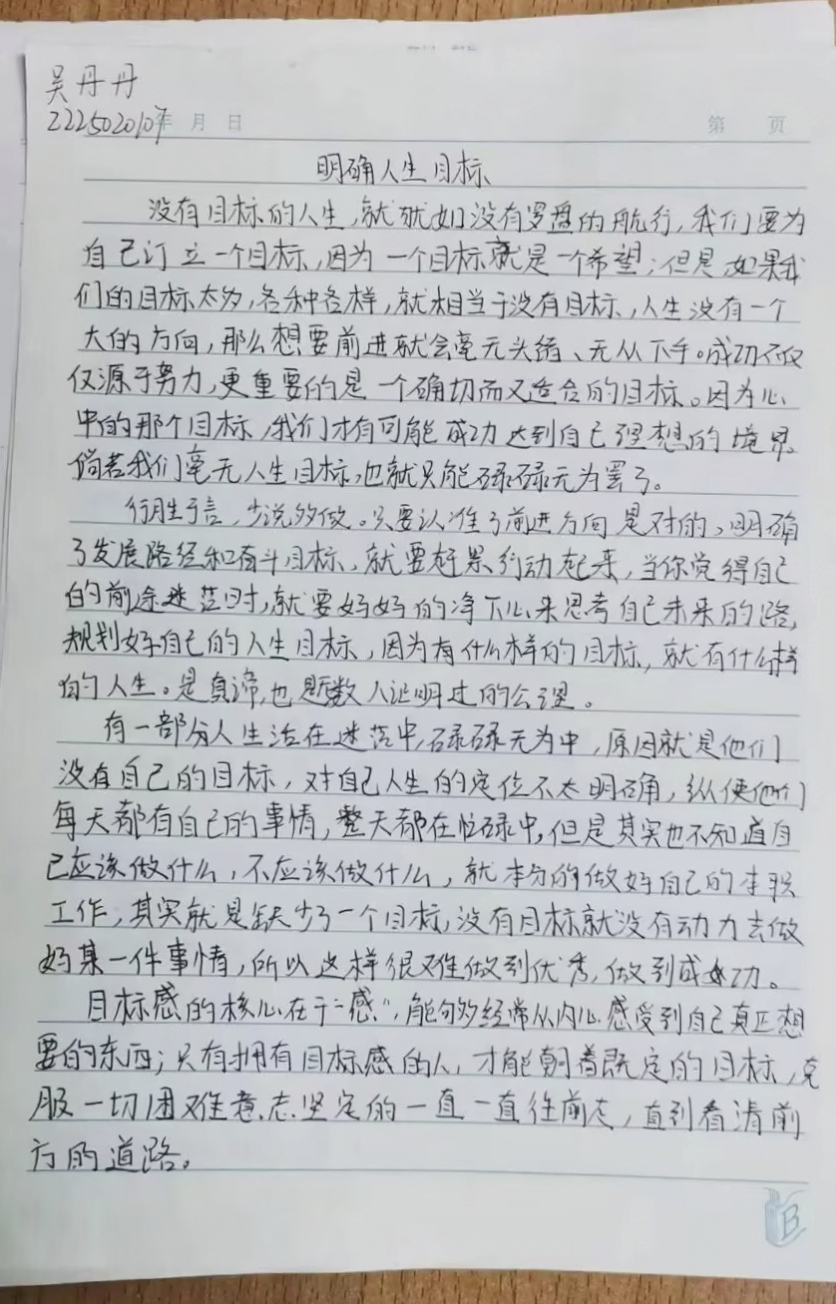 吴丹丹
222502010
年 月 日
第 页
明确人生目标
没有目标的人生,就犹如没有罗盘的航行,我们要为
自己订立一个目标,因为一个目标就是一个希望;但是,如果我
们的目标太多,各种各样,就相当于没有目标,人生没有一个
大的方向,那么想要前进就会毫无头绪、无从下手。成功不仅
仅源于努力,更重要的是一个确切而又适合的目标。因为心
中的那个目标,我们才有可能成功达到自己理想的境界,
倘若我们毫无人生目标,也就只能碌碌无为罢了。
行胜于言,少说多做。只要认准了前进方向是对的,明确
了发展路径和奋斗目标,就要赶累行动起来,当你觉得自己
的前途迷茫时,就要好好的净下心来思考自己未来的路,
规划好自己的人生目标,因为有什么样的目标,就有什么样
的人生。是真谛,也是数人证明过的公理。
有一部分人生活在迷茫中,碌碌无为中,原因就是他们
没有自己的目标,对自己人生的定位不太明确,纵使他们
每天都有自己的事情,整天都在忙碌中,但是其实也不知道自
己应该做什么,不应该做什么,就本分的做好自己的本职
工作,其实就是缺少了一个目标,没有目标就没有动力去做
好某一件事情,所以这样很难做到优秀,做到成功。
目标感的核心在于“感”,能够经常从内心感受到自己真正想
要的东西;只有拥有目标感的人,才能朝着既定的目标,克
服一切困难意志坚定的一直一直往前走,直到看清前
方的道路。
B